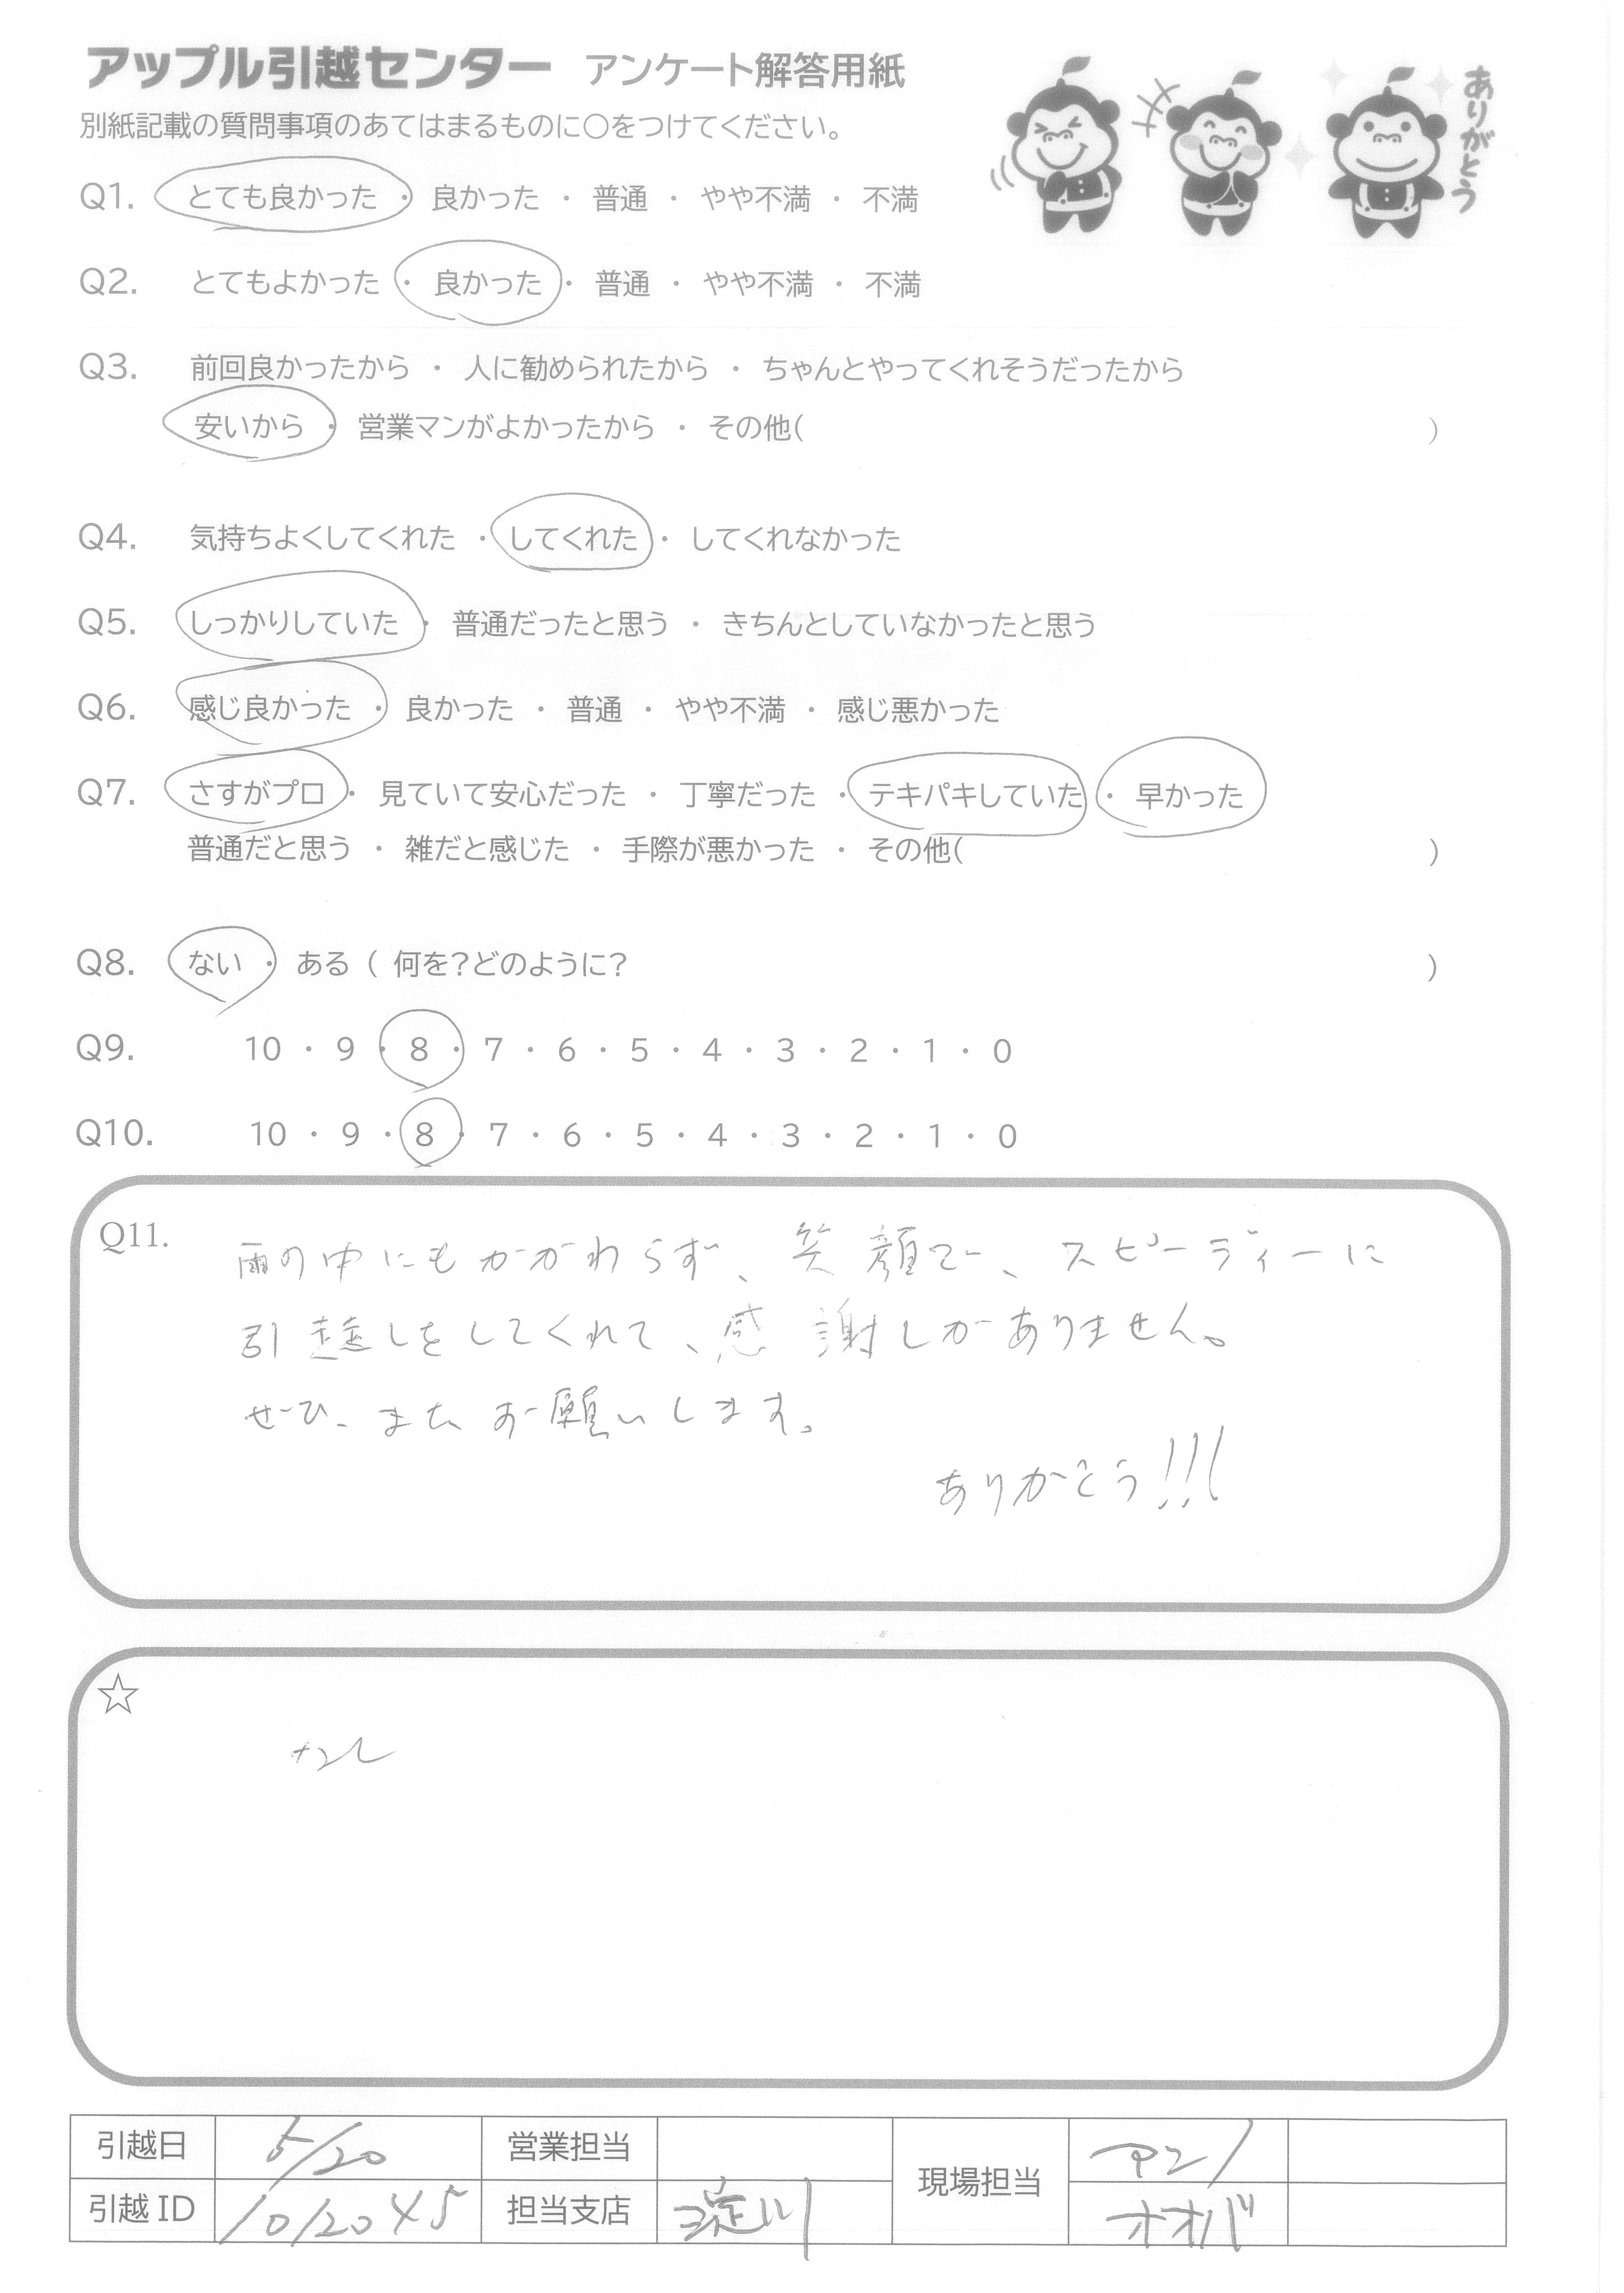 アップル引越センター アンケート解答用紙
ありがとう
別紙記載の質問事項のあてはまるものに○をつけてください。
Q1. とても良かった ・ 良かった ・ 普通 ・ やや不満 ・ 不満
Q2. とてもよかった ・ 良かった ・ 普通 ・ やや不満 ・ 不満
Q3. 前回良かったから ・ 人に勧められたから ・ ちゃんとやってくれそうだったから
安いから ・ 営業マンがよかったから ・ その他( )
Q4. 気持ちよくしてくれた ・ してくれた ・ してくれなかった
Q5. しっかりしていた ・ 普通だったと思う ・ きちんとしていなかったと思う
Q6. 感じ良かった ・ 良かった ・ 普通 ・ やや不満 ・ 感じ悪かった
Q7. さすがプロ ・ 見ていて安心だった ・ 丁寧だった ・ テキパキしていた ・ 早かった
普通だと思う ・ 雑だと感じた ・ 手際が悪かった ・ その他( )
Q8. ない ・ ある ( 何を?どのように? )
Q9. 10 ・ 9 ・ 8 ・ 7 ・ 6 ・ 5 ・ 4 ・ 3 ・ 2 ・ 1 ・ 0
Q10. 10 ・ 9 ・ 8 ・ 7 ・ 6 ・ 5 ・ 4 ・ 3 ・ 2 ・ 1 ・ 0
Q11. 雨の中にもかかわらず、笑顔で、スピーディーに
引越しをしてくれて、感謝しかありません。
ぜひ、またお願いします。
ありがとう!!!
☆
なし
引越日 5/20 営業担当 現場担当
引越ID 1012045 担当支店 淀川 オオバ